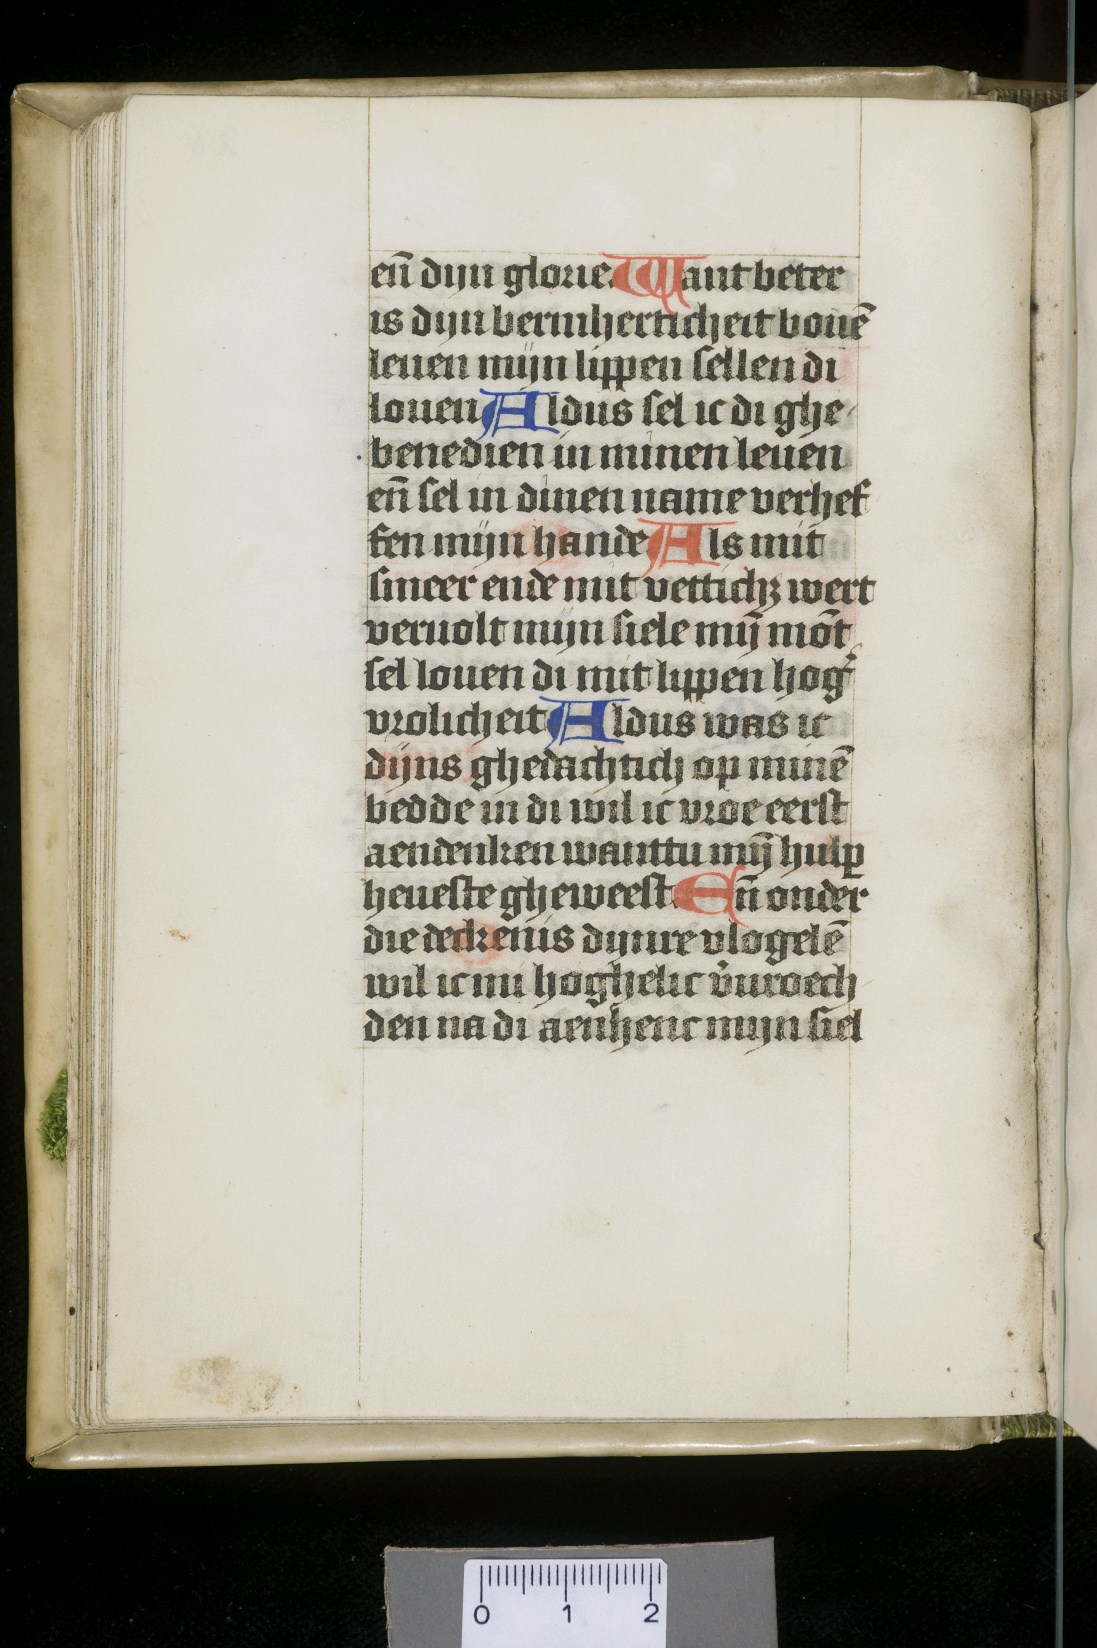 en̄ dijn glorie. Want beter
is dijn bermherticheit bouē
leuen mijn lippen sellen di
louen Aldus sel ic di ghe
benedien in minen leuen
en̄ sel in dinen name verhef
fen mijn hande Als mit
smeer ende mit vettichꝫ wert
veruolt mijn siele mij̄ mōt
sel louen di mit lippen hog̾
vrolicheit Aldus was ic
dijns ghedachtich op minē
bedde in di wil ic vroe eerst
aendenken wanttu mij̄ hulp
heueste gheweest. En̄ onder
die deckenis dijnre vlogelē
wil ic mi hoghelic v̾uroech
den na di aenhenc mijn siel
0 1 2